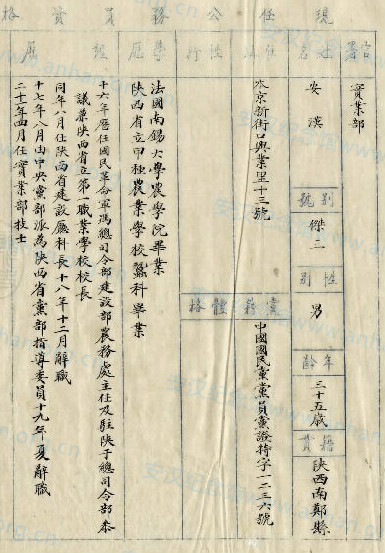 現任公務員資格
官署
實業部
姓名
安漢
別號
傑二
性別
男
年齡
三十五歲
籍貫
陝西南鄭縣
住址
本京新街口興業里十三號
黨籍
中國國民黨黨員黨證特字一二三六號
性行
體格
學歷
法國南錫大學農學院畢業
陝西省立甲種農業學校蠶科畢業
經歷
十六年歷任國民革命軍馮總司令部建設部農務處主任及駐陝于總司令部參
議兼陝西省立第一職業學校校長
同年八月任陝西省建設廳科長十八年十二月辭職
十七年八月由中央黨部派為陝西省黨部指導委員十九年夏辭職
二十一年四月任實業部技士